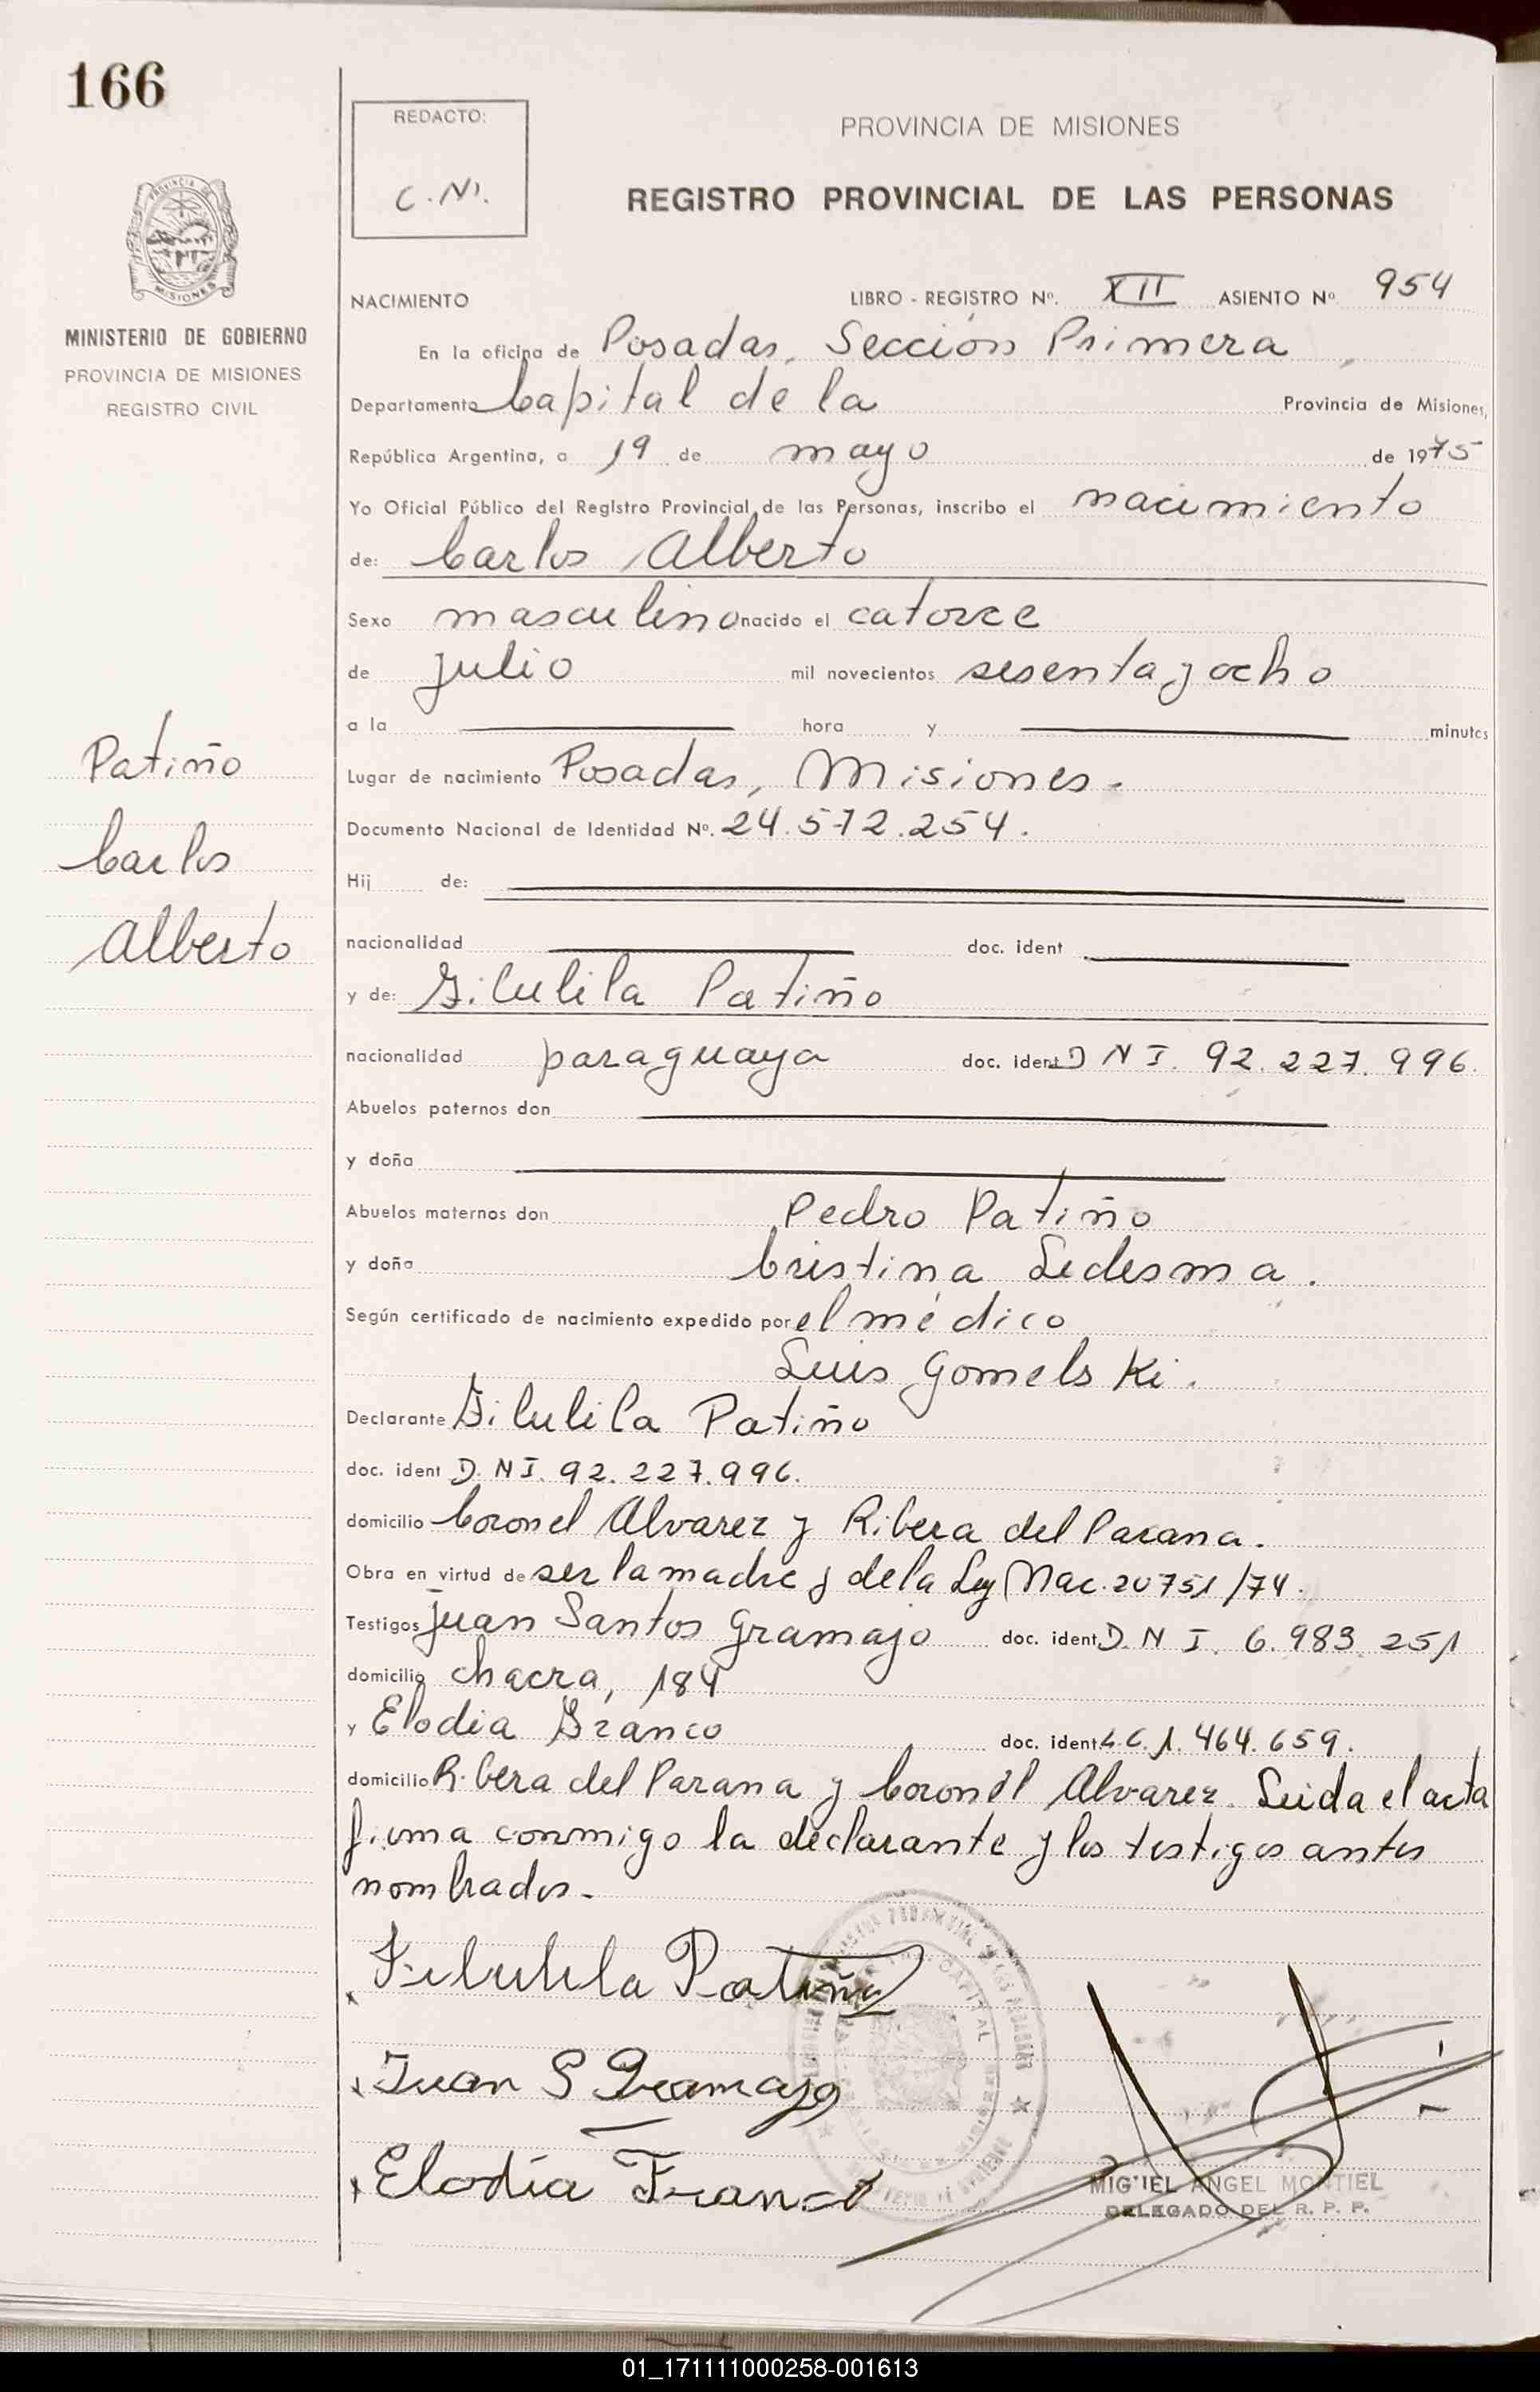 166
REDACTO:
C.N.
PROVINCIA DE MISIONES
REGISTRO PROVINCIAL DE LAS PERSONAS
MISIONES
MINISTERIO DE GOBIERNO
PROVINCIA DE MISIONES
REGISTRO CIVIL
NACIMIENTO LIBRO - REGISTRO Nº. XII ASIENTO Nº 954
En la oficina de Posadas, Sección Primera,
Departamento Capital de la Provincia de Misiones,
República Argentina, a 19 de mayo de 1975
Yo Oficial Público del Registro Provincial de las Personas, inscribo el nacimiento
de: Carlos Alberto
Sexo masculino nacido el catorce
de julio mil novecientos sesenta y ocho
a la hora y minutos
Patiño
Carlos
Alberto
Lugar de nacimiento Posadas, Misiones.
Documento Nacional de Identidad Nº. 24.572.254.
Hij de:
nacionalidad doc. ident
y de: Filulila Patiño
nacionalidad paraguaya doc. ident D N I. 92.227.996.
Abuelos paternos don
y doña
Abuelos maternos don Pedro Patiño
y doña Cristina Ledesma.
Según certificado de nacimiento expedido por el médico
Luis Gomelski.
Declarante Filulila Patiño
doc. ident D. N I. 92.227.996.
domicilio Coronel Alvarez y Ribera del Parana.
Obra en virtud de ser la madre y de la Ley Nac. 20751/74.
Testigos Juan Santos Gramajo doc. ident D. N I. 6.983.251
domicilio chacra, 184
y Elodia Franco doc. ident L.C. 1.464.659.
domicilio Ribera del Parana y Coronel Alvarez. Leida el acta
firma conmigo la declarante y los testigos antes
nombrados.-
Filulila Patiño
Juan S Gramajo
Elodia Franco
CAPITAL
MIGUEL ANGEL MONTIEL
DELEGADO DEL R. P. P.
01_171111000258-001613